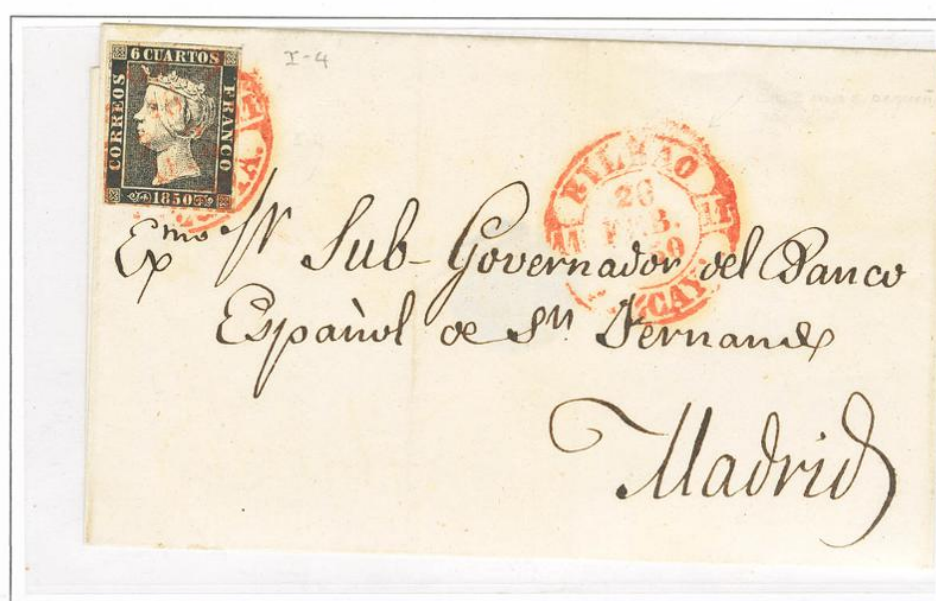 6 CUARTOS
CORREOS
FRANCO
1850
I-4
BILBAO
26
FEB.
Exmo Sr Sub-Governador del Banco
Español de Sn Fernando
Madrid